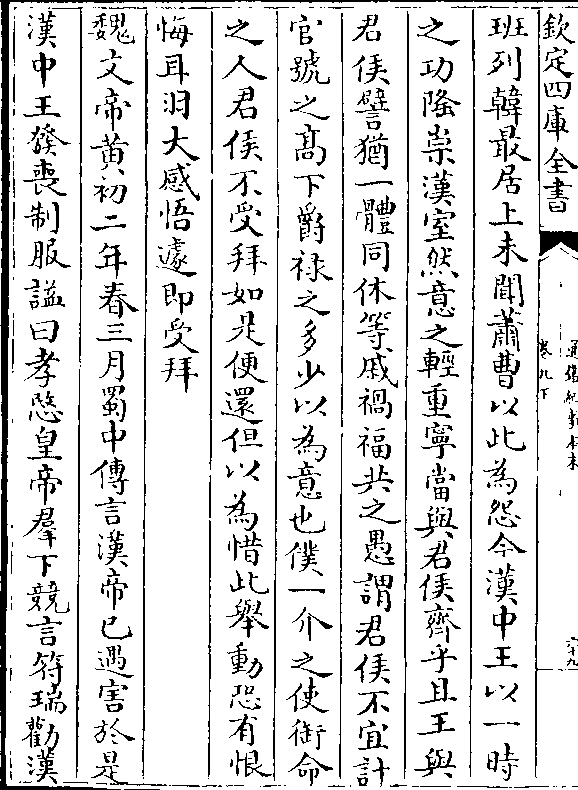 欽定四庫全書
通鑑紀事本末
卷九下
六十九
班列韓最居上未聞蕭曹以此為怨今漢中王以一時
之功隆崇漢室然意之輕重寧當與君侯齊乎且王與
君侯譬猶一體同休等戚禍福共之愚謂君侯不宜計
官號之髙下爵禄之多少以為意也僕一介之使銜命
之人君侯不受拜如是便還但以為惜此舉動恐有恨
悔耳羽大感悟遽即受拜
魏文帝黄初二年春三月蜀中傳言漢帝已遇害於是
漢中王發喪制服諡曰孝愍皇帝羣下競言符瑞勸漢